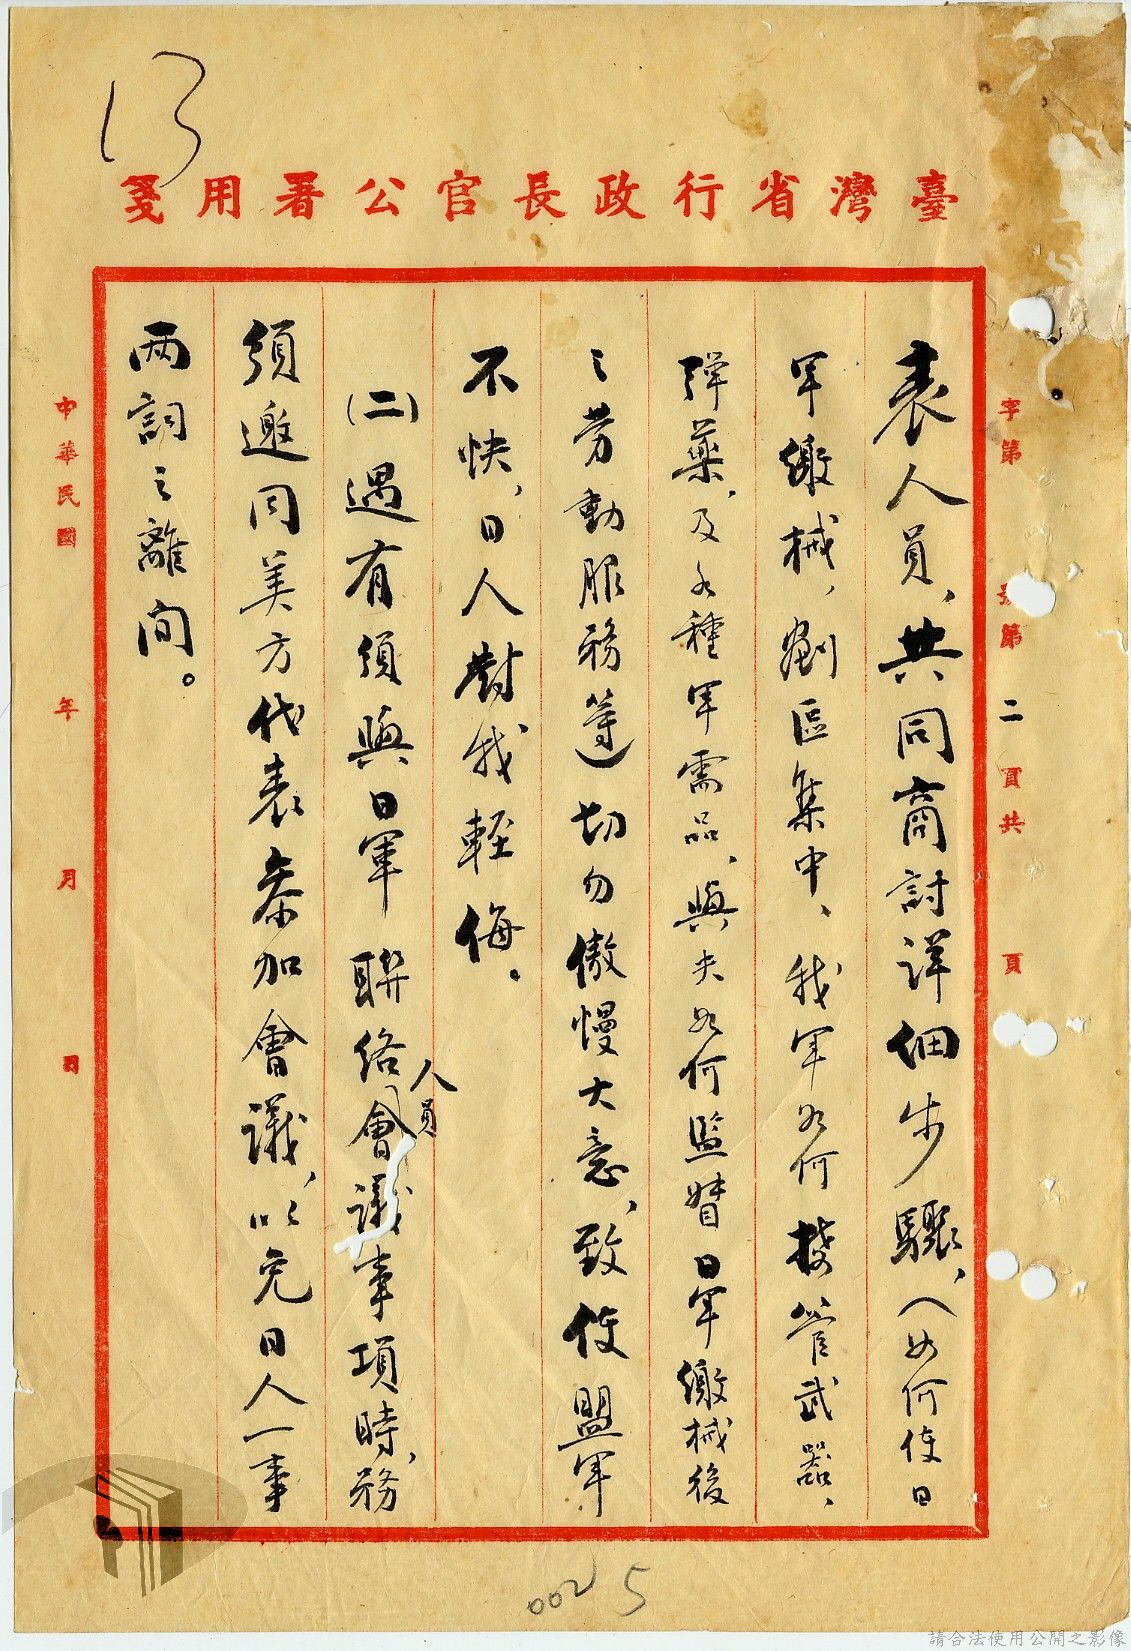 13
臺灣省行政長官公署用箋
字第 號第二頁共 頁
表人員、共同商討詳細步驟、(如何使日
軍繳械、劃區集中、我軍如何接管武器、
彈藥、及各種軍需品、與夫如何監督日軍繳械後
之勞動服務等)切勿傲慢大意、致使盟軍
不快、日人對我輕侮。
(二)遇有須與日軍聯絡人員會議事項時、務
須邀同美方代表參加會議、以免日人一事
兩詞之離間。
中華民國 年 月 日
002 5
請合法使用公開之影像